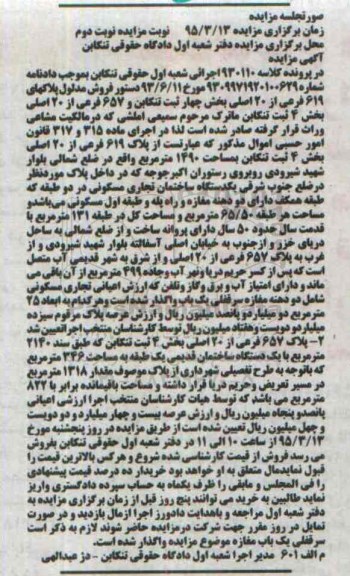 صورتجلسه مزایده
زمان برگزاری مزایده ۹۵/۳/۱۳ نوبت مزایده نوبت دوم
محل برگزاری مزایده دفتر شعبه اول دادگاه حقوقی تنکابن
آگهی مزایده
در پرونده کلاسه ۹۳۰۱۱۰ اجرائی شعبه اول حقوقی تنکابن بموجب دادنامه
شماره ۹۳۰۹۹۷۱۹۲۰۱۰۰۶۲۹ مورخ ۹۳/۶/۱۱ دستور فروش مدلول پلاکهای
۶۱۹ فرعی از ۲۰ اصلی بخش چهار ثبت تنکابن و ۶۵۷ فرعی از ۲۰ اصلی
بخش ۴ ثبت تنکابن ماترک مرحوم سمیعی املشی که درمالکیت مشاعی
وراث قرار گرفته صادر شده است لذا در اجرای ماده ۳۱۵ و ۳۱۷ قانون
امور حسبی اموال مذکور که عبارتست از پلاک ۶۱۹ فرعی از ۲۰ اصلی
بخش ۴ ثبت تنکابن بمساحت ۱۴۹۰ مترمربع واقع در ضلع شمالی بلوار
شهید شیرودی روبروی رستوران اکبرجوجه که در داخل پلاک موردنظر
درضلع جنوب شرقی یکدستگاه ساختمان تجاری مسکونی در دو طبقه که
طبقه همکف دارای دو دهنه مغازه و راه پله و طبقه اول مسکونی می‌باشدو
مساحت هر طبقه ۶۵/۵۰ مترمربع و مساحت کل در طبقه ۱۳۱ مترمربع با
قدمت حدود ۵۰ سال دارای پروانه ساخت و از ضلع شمالی به ساحل
دریای خزر و ازجنوب به خیابان اصلی آسفالته بلوار شهید شیرودی و از
غرب به پلاک ۶۵۷ فرعی از ۲۰ اصلی و از شرق به شهر قدیمی آب متصل
است که پس از کسر حریم دریا ونهر آب وجاده ۴۹۹ مترمربع از آن باقی می
ماند و دارای امتیاز آب و برق وگاز وتلفن که ارزش اعیانی تجاری مسکونی
شامل دو دهنه مغازه سرقفلی یک باب واگذار شده است وهرکدام به ابعاد ۲۵
مترمربع دو میلیارد و پانصد میلیون ریال و ارزش عرصه پلاک مرقوم سیزده
میلیارد و دویست وهفتاد میلیون ریال توسط کارشناسان منتخب اجراتعیین شد
۲- پلاک ۶۵۷ فرعی از ۲۰ اصلی بخش ۴ ثبت تنکابن که طبق سند ۲۱۴۰
مترمربع با یک دستگاه ساختمان قدیمی یک طبقه به مساحت ۳۴۶ مترمربع
که باتوجه به طرح تفصیلی شهرداری از پلاک موصوف مقدار ۱۳۱۸ مترمربع
در مسیر تعریض وحریم دریا قرار داشته و مساحت باقیمانده برابر با ۸۲۲
مترمربع می باشد که توسط هیات کارشناسان منتخب اجرا ارزشی اعیانی
پانصدو پنجاه میلیون ریال و ارزش عرصه بیست و چهار میلیارد و دو دویست
و چهل میلیون ریال تعیین شده است از طریق مزایده در روز پنجشنبه مورخ
۹۵/۳/۱۳ از ساعت ۱۰ الی ۱۱ در دفتر شعبه اول حقوقی تنکابن بفروش
می رسد فروش از قیمت کارشناسی شده شروع و هرکس بالاترین قیمت را
قبول نمایدمال متعلق به او خواهد بود خریدار ده درصد قیمت پیشنهادی
را فی المجلس و مابقی را ظرف یکماه به حساب سپرده دادگستری واریز
نماید طالبین به خرید می توانند پنج روز قبل از زمان برگزاری مزایده به
دفتر شعبه اول مراجعه و باهدایت دادورز اجرا ازمال بازدید و در صورت
تمایل در روز مقرر جهت شرکت درمزایده حاضر شوند لازم به ذکر است
سرقفلی یک باب مغازه موضوع مزایده واگذار شده است.
م الف ۶۰۱ مدیر اجرا شعبه اول دادگاه حقوقی تنکابن - دژ عبدالهی